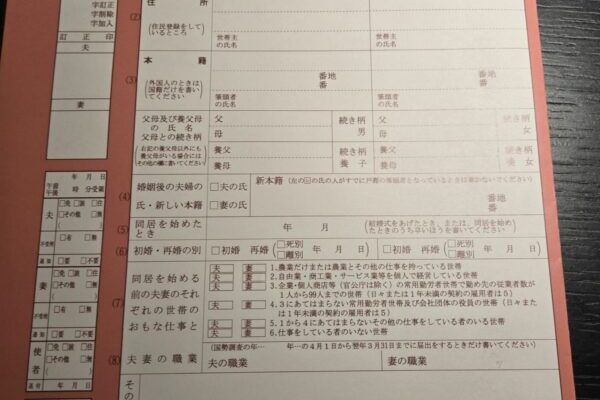 字訂正
字削除
字加入
訂正印
夫
妻
(2)
住所
(住民登録をしているところ)
世帯主の氏名
世帯主の氏名
(3)
本籍
(外国人のときは国籍だけを書いてください)
番地
番
番地
番
筆頭者の氏名
筆頭者の氏名
父母及び養父母の氏名
父母との続き柄
(右記の養父母以外にも養父母がいる場合にはその他の欄に書いてください)
父
続き柄
父
続き柄
母
男
母
女
養父
続き柄
養父
続き柄
養母
養子
養母
養女
(4)
婚姻後の夫婦の氏・新しい本籍
□夫の氏
□妻の氏
新本籍
(5)
同居を始めたとき
年 月
(結婚式をあげたとき、または、同居を始めたときのうち早いほうを書いてください)
(6)
初婚・再婚の別
□初婚 再婚 (□死別 □離別 年 月 日)
□初婚 再婚 (□死別 □離別 年 月 日)
(7)
同居を始める前の夫妻のそれぞれの世帯のおもな仕事と
夫 妻 1.農業だけまたは農業とその他の仕事を持っている世帯
夫 妻 2.自由業・商工業・サービス業等を個人で経営している世帯
夫 妻 3.企業・個人商店等(官公庁は除く)の常用勤労者世帯で勤め先の従業者数が
1人から99人までの世帯(日々または1年未満の契約の雇用者は5)
夫 妻 4.3にあてはまらない常用勤労者世帯及び会社団体の役員の世帯(日々または
1年未満の契約の雇用者は5)
夫 妻 5.1から4にあてはまらないその他の仕事をしている者のいる世帯
夫 妻 6.仕事をしている者のいない世帯
(8)
夫妻の職業
(国勢調査の年…年…の4月1日から翌年3月31日までに届出をするときだけ書いてください)
夫の職業
妻の職業
その
年 月 日
午前
午後
時 分受領
夫
□免 □旅 □住
□その他 □無
( )
不受理
□有 □無
通知
□要 □不要
妻
□免 □旅 □住
□その他 □無
( )
不受理
□有 □無
通知
□要 □不要
使者
□免 □旅 □住
□その他 □無
( )
年 月 日